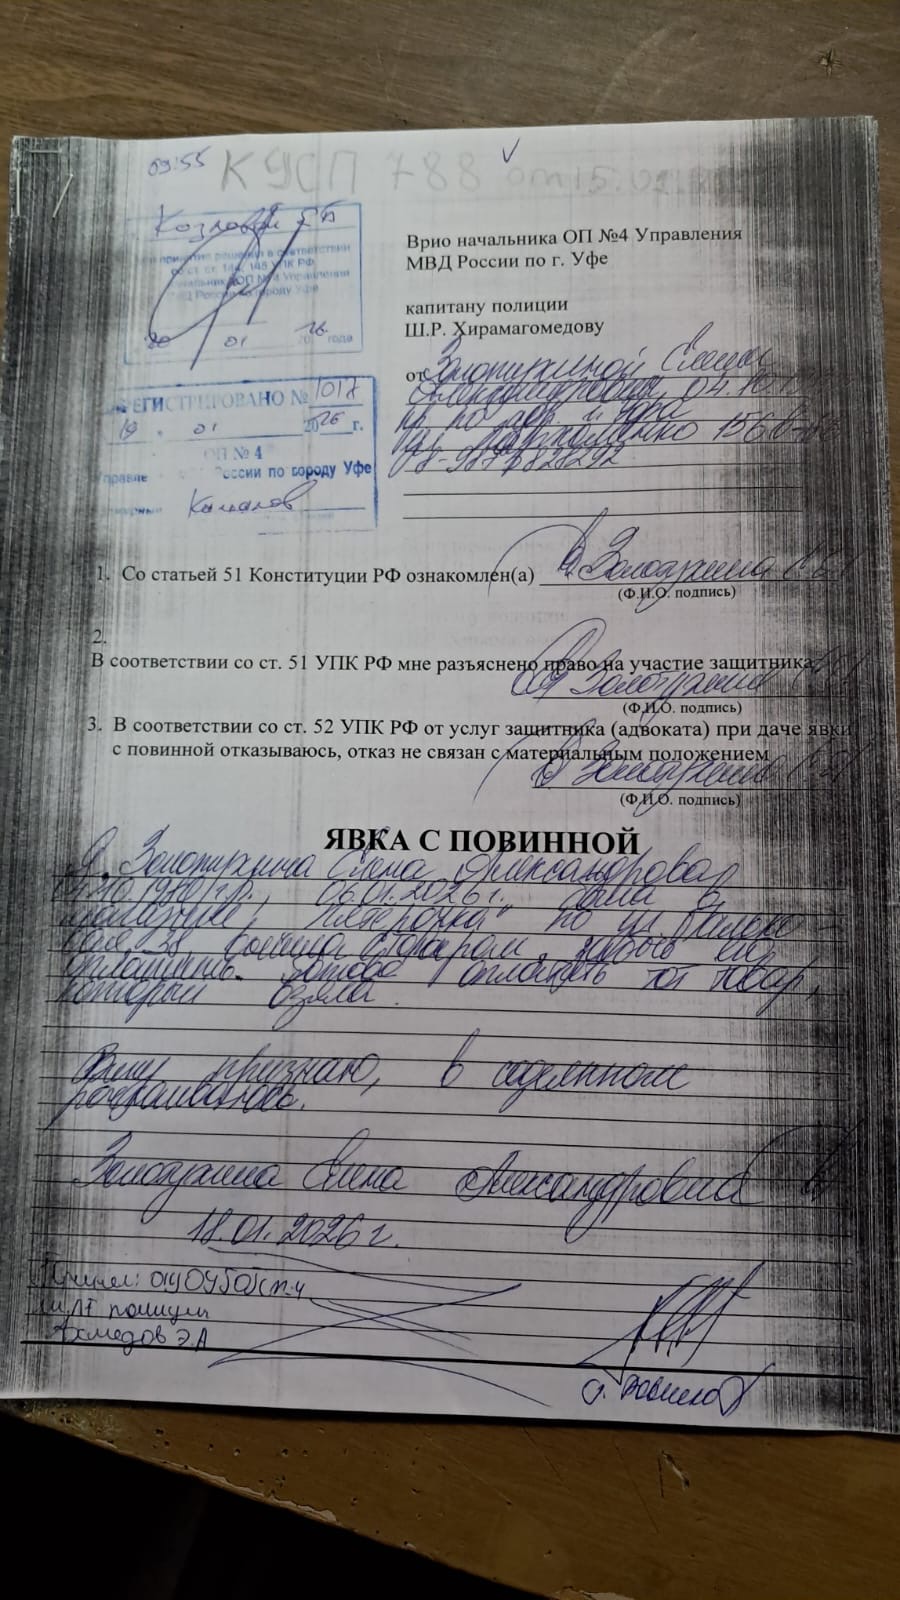 09:55
КУСП 788 от 15.01.
Козловой
принятие решения в соответствии
со ст. ст. 144, 145 УПК РФ
ОП № 4 Управления
МВД России по городу Уфе
20 01 2026 года
РЕГИСТРИРОВАНО № 1017
19 . 01 2026 г.
ОП № 4
России по городу Уфе
Камалов
Врио начальника ОП №4 Управления
МВД России по г. Уфе
капитану полиции
Ш.Р. Хирамагомедову
от Золотухиной Елены
Александровны 04.10.
156
1. Со статьей 51 Конституции РФ ознакомлен(а) Золотухина
(Ф.И.О. подпись)
2.
В соответствии со ст. 51 УПК РФ мне разъяснено право на участие защитника
Золотухина
(Ф.И.О. подпись)
3. В соответствии со ст. 52 УПК РФ от услуг защитника (адвоката) при даче явки
с повинной отказываюсь, отказ не связан с материальным положением
Золотухина
(Ф.И.О. подпись)
ЯВКА С ПОВИННОЙ
Я, Золотухина Елена Александровна
04.10.1980 г.р., 06.01.2026 г.
магазине "Пятерочка" по ул.
28 вышла с товаром, забыв его
оплатить. Готова оплатить тот товар,
который взяла.
Вину признаю, в содеянном
раскаиваюсь.
Золотухина Елена Александровна
18.01.2026 г.
Принял:
полиции
Ахмедов Э.А